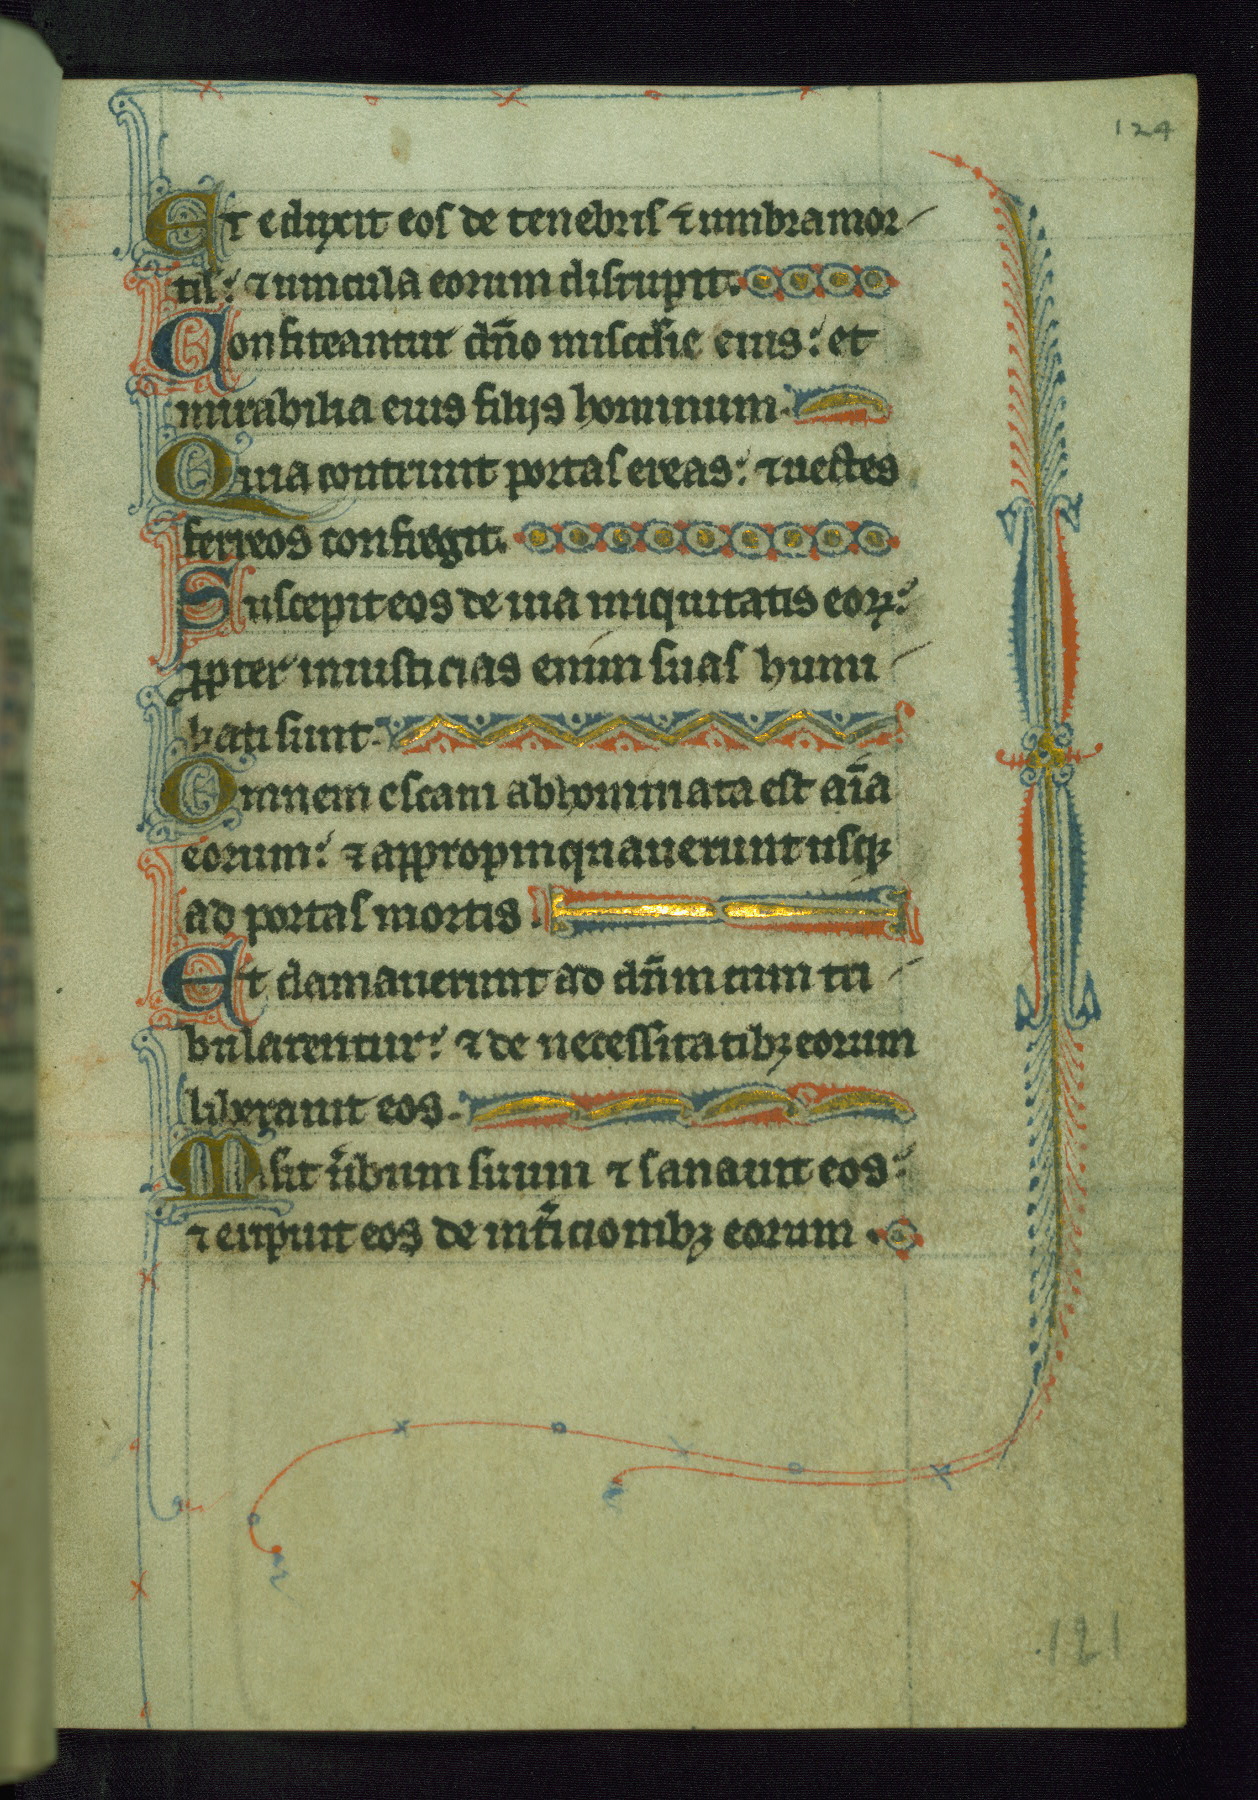 124
Et eduxit eos de tenebris ⁊ umbra mor
tis: ⁊ uincula eorum disrupit.
Confiteantur dn̄o mis̄cdie eius: et
mirabilia eius filijs hominum.
Quia contriuit portas ereas: ⁊ uectes
ferreos confregit.
Suscepit eos de uia iniquitatis eoꝝ:
ꝓpter iniusticias enim suas humi
liati sunt.
Omnem escam abhominata est aīa
eorum: ⁊ appropinquauerunt usqꝫ
ad portas mortis.
Et clamauerunt ad dn̄m cum tri
bularentur: ⁊ de necessitatibꝫ eorum
liberauit eos.
Misit u̅bum suum ⁊ sanauit eos:
⁊ eripuit eos de int̄icionibꝫ eorum.
121